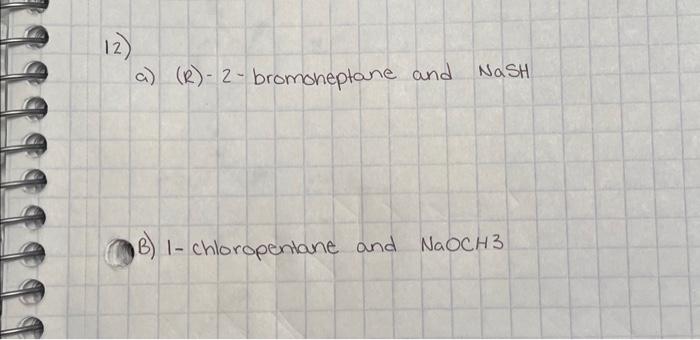 12)
a) (R)-2-bromoheptane and NaSH
B) 1-chloropentane and NaOCH3